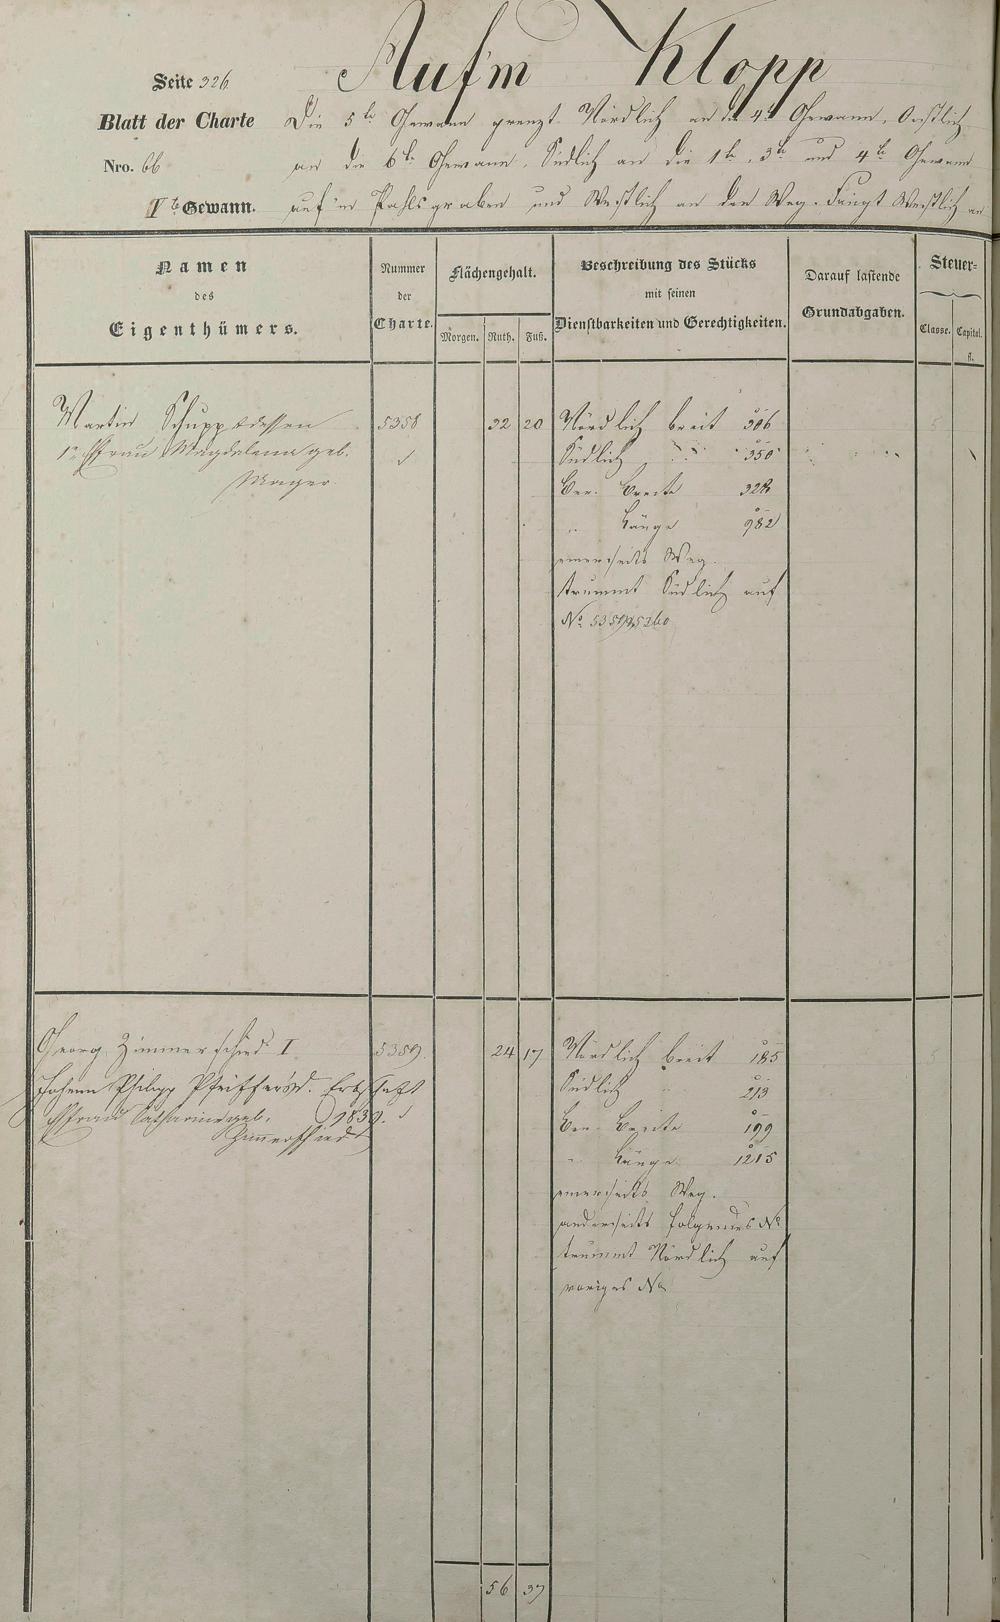 Aufm Klopp
Seite 326
Blatt der Charte
Nro. 66
Vte Gewann.
Die 5te Gewann grenzt Nördlich an die 4te Gewann, Oestlich
an die 6te Gewann, Südlich an die 1te, 3te und 4te Gewann
auf'm Pfahlsgraben und Westlich an den Weg. Fängt Westlich an
Namen
des
Eigenthümers.
Nummer
der
Charte.
Flächengehalt.
Morgen. Ruth. Fuß.
Beschreibung des Stücks
mit seinen
Dienstbarkeiten und Gerechtigkeiten.
Darauf lastende
Grundabgaben.
Steuer-
Classe. Capital.
fl.
Martin Schupp dessen 5358 32 20 Nördlich breit 306
1te Ehfrau Magdalena geb. Südlich " " 350
Mager Ber. Breite 328
" Länge 982
einerseits Weg.
trummt Südlich auf
No. 5359 5360
Georg Zimmerschied I 5359. 24 17 Nördlich breit 185
Johann Philipp Pfeiffer Südlich " 213
Ehfrau Catharina geb. 1839. Ber. Breite 199
Zimmerschied " Länge 1215
einerseits Weg.
anderseits folgendes No
trummt Nördlich auf
voriges No
56 37